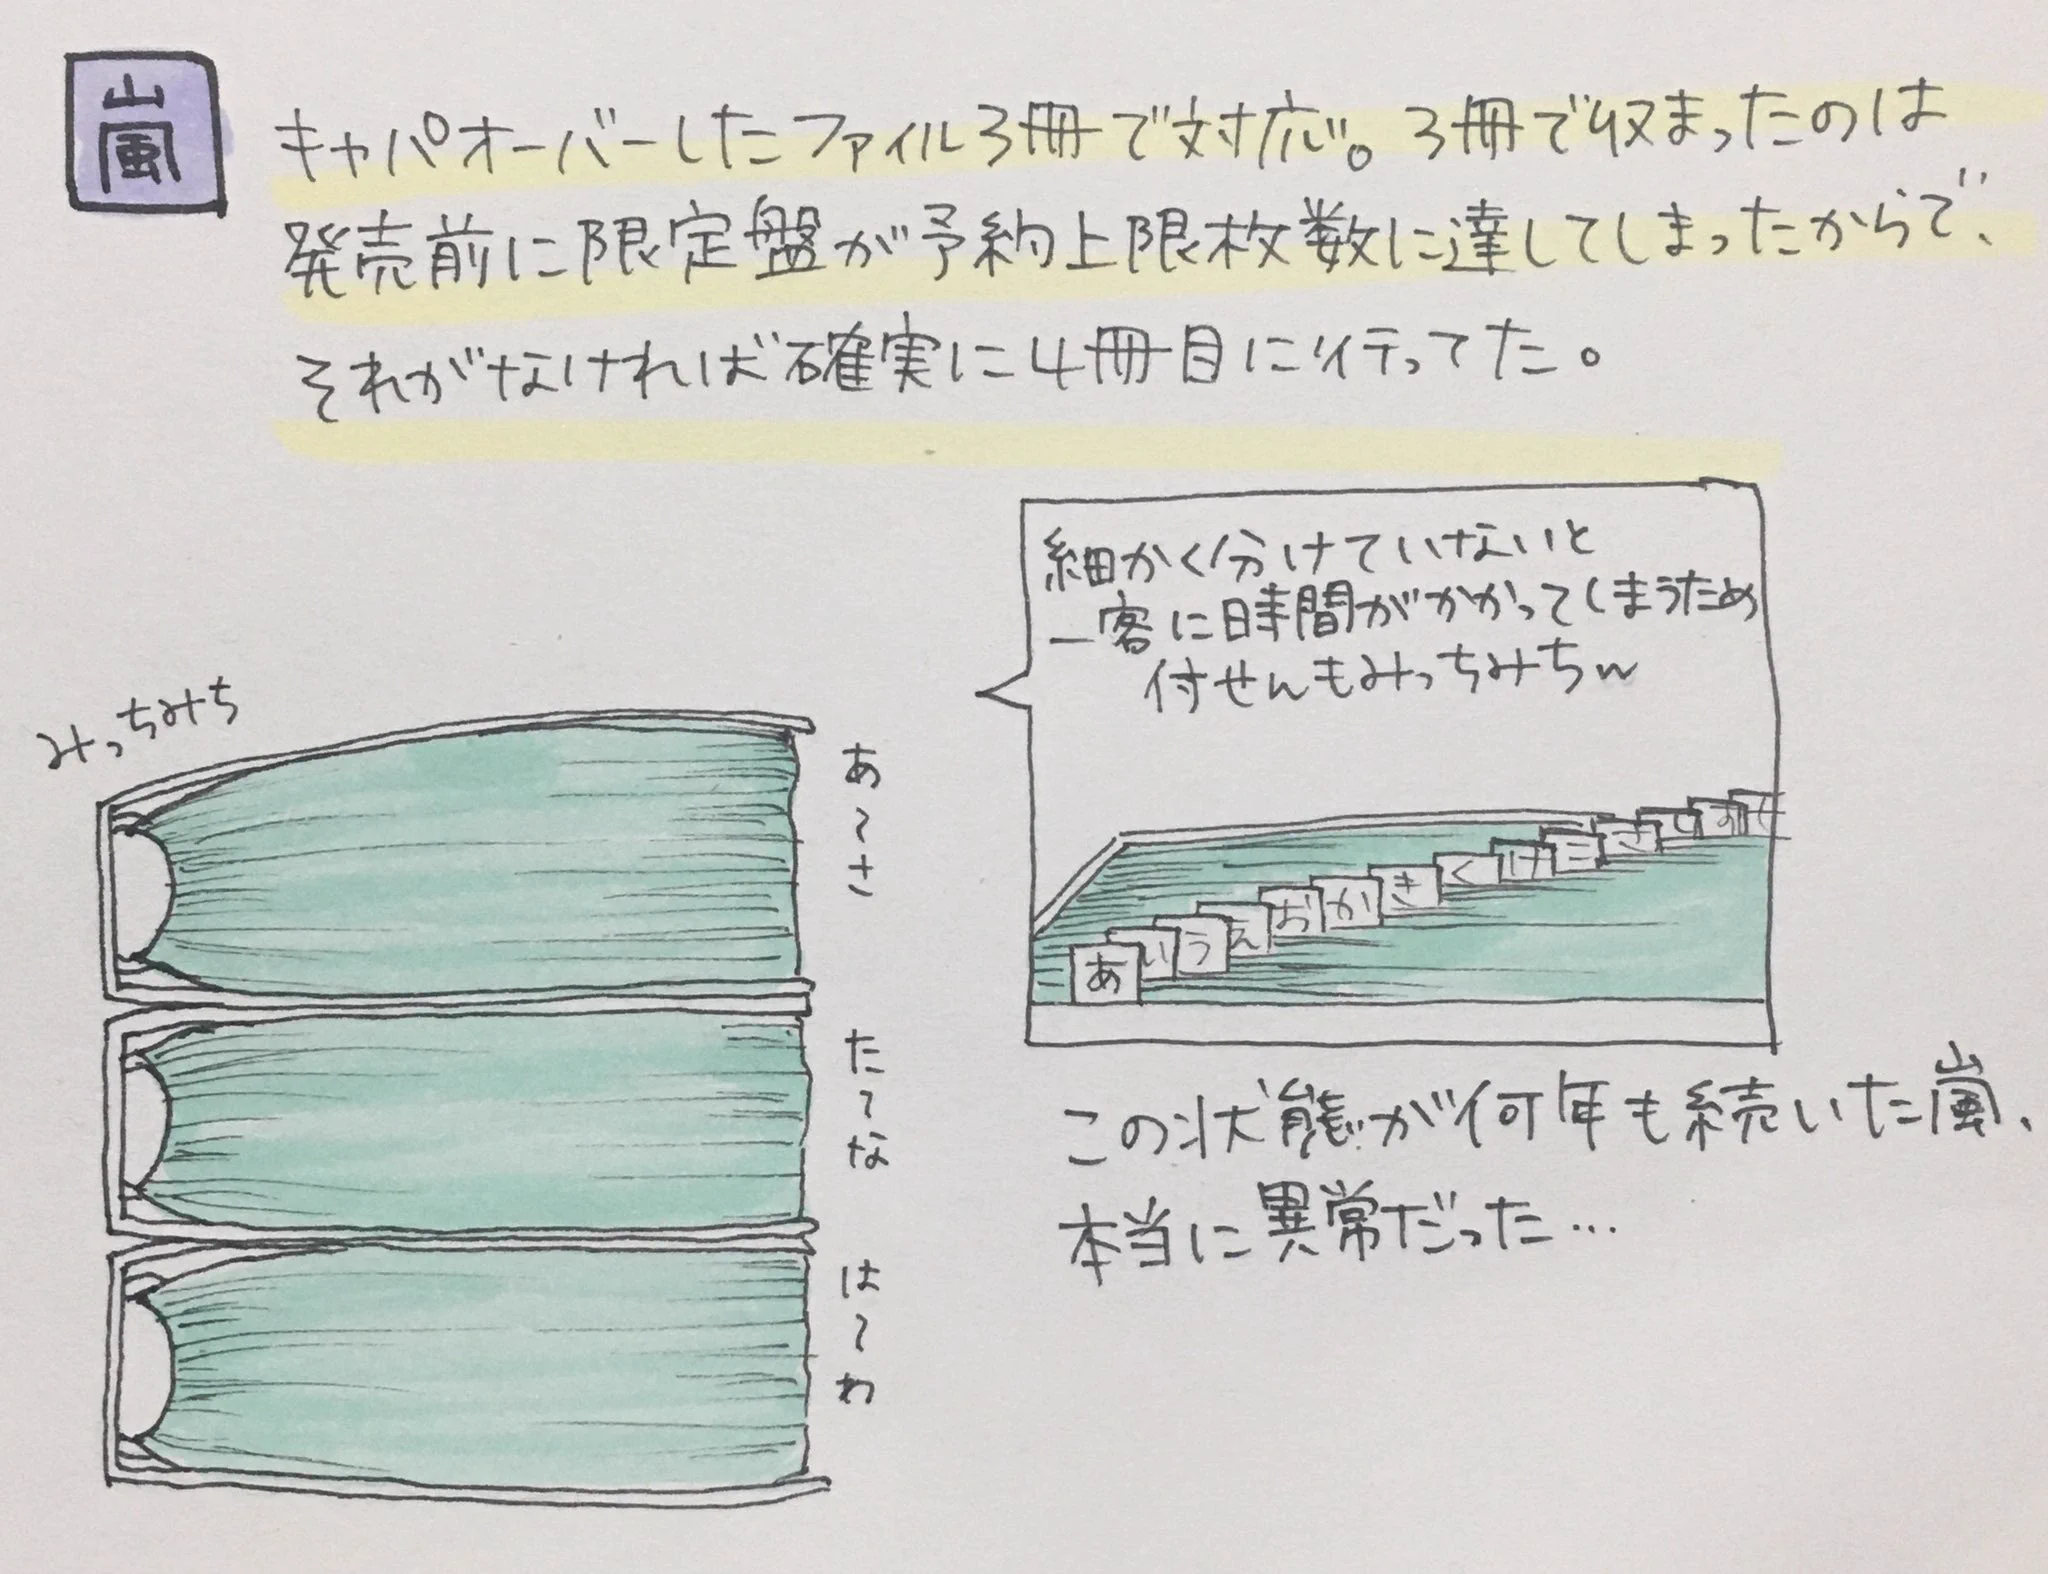 嵐
キャパオーバーしたファイル3冊で対応。3冊で収まったのは
発売前に限定盤が予約上限枚数に達してしまったからで、
それがなければ確実に4冊目に行ってた。
細かく分けていないと
一客に時間がかかってしまうため
付せんもみっちみちw
みっちみち
あ〜さ
た〜な
は〜わ
あ
い
う
え
お
か
き
く
け
こ
さ
し
す
せ
この状態が何年も続いた嵐、
本当に異常だった…